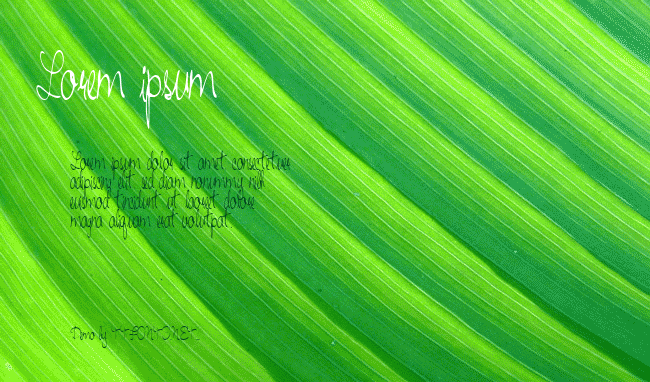 Lorem ipsum
Lorem ipsum dolor sit amet consectetuer
adipiscing elit, sed diam nonummy nibh
euismod tincidunt ut laoreet dolore
magna aliquam erat volutpat.
Demo by TTFONT.NET